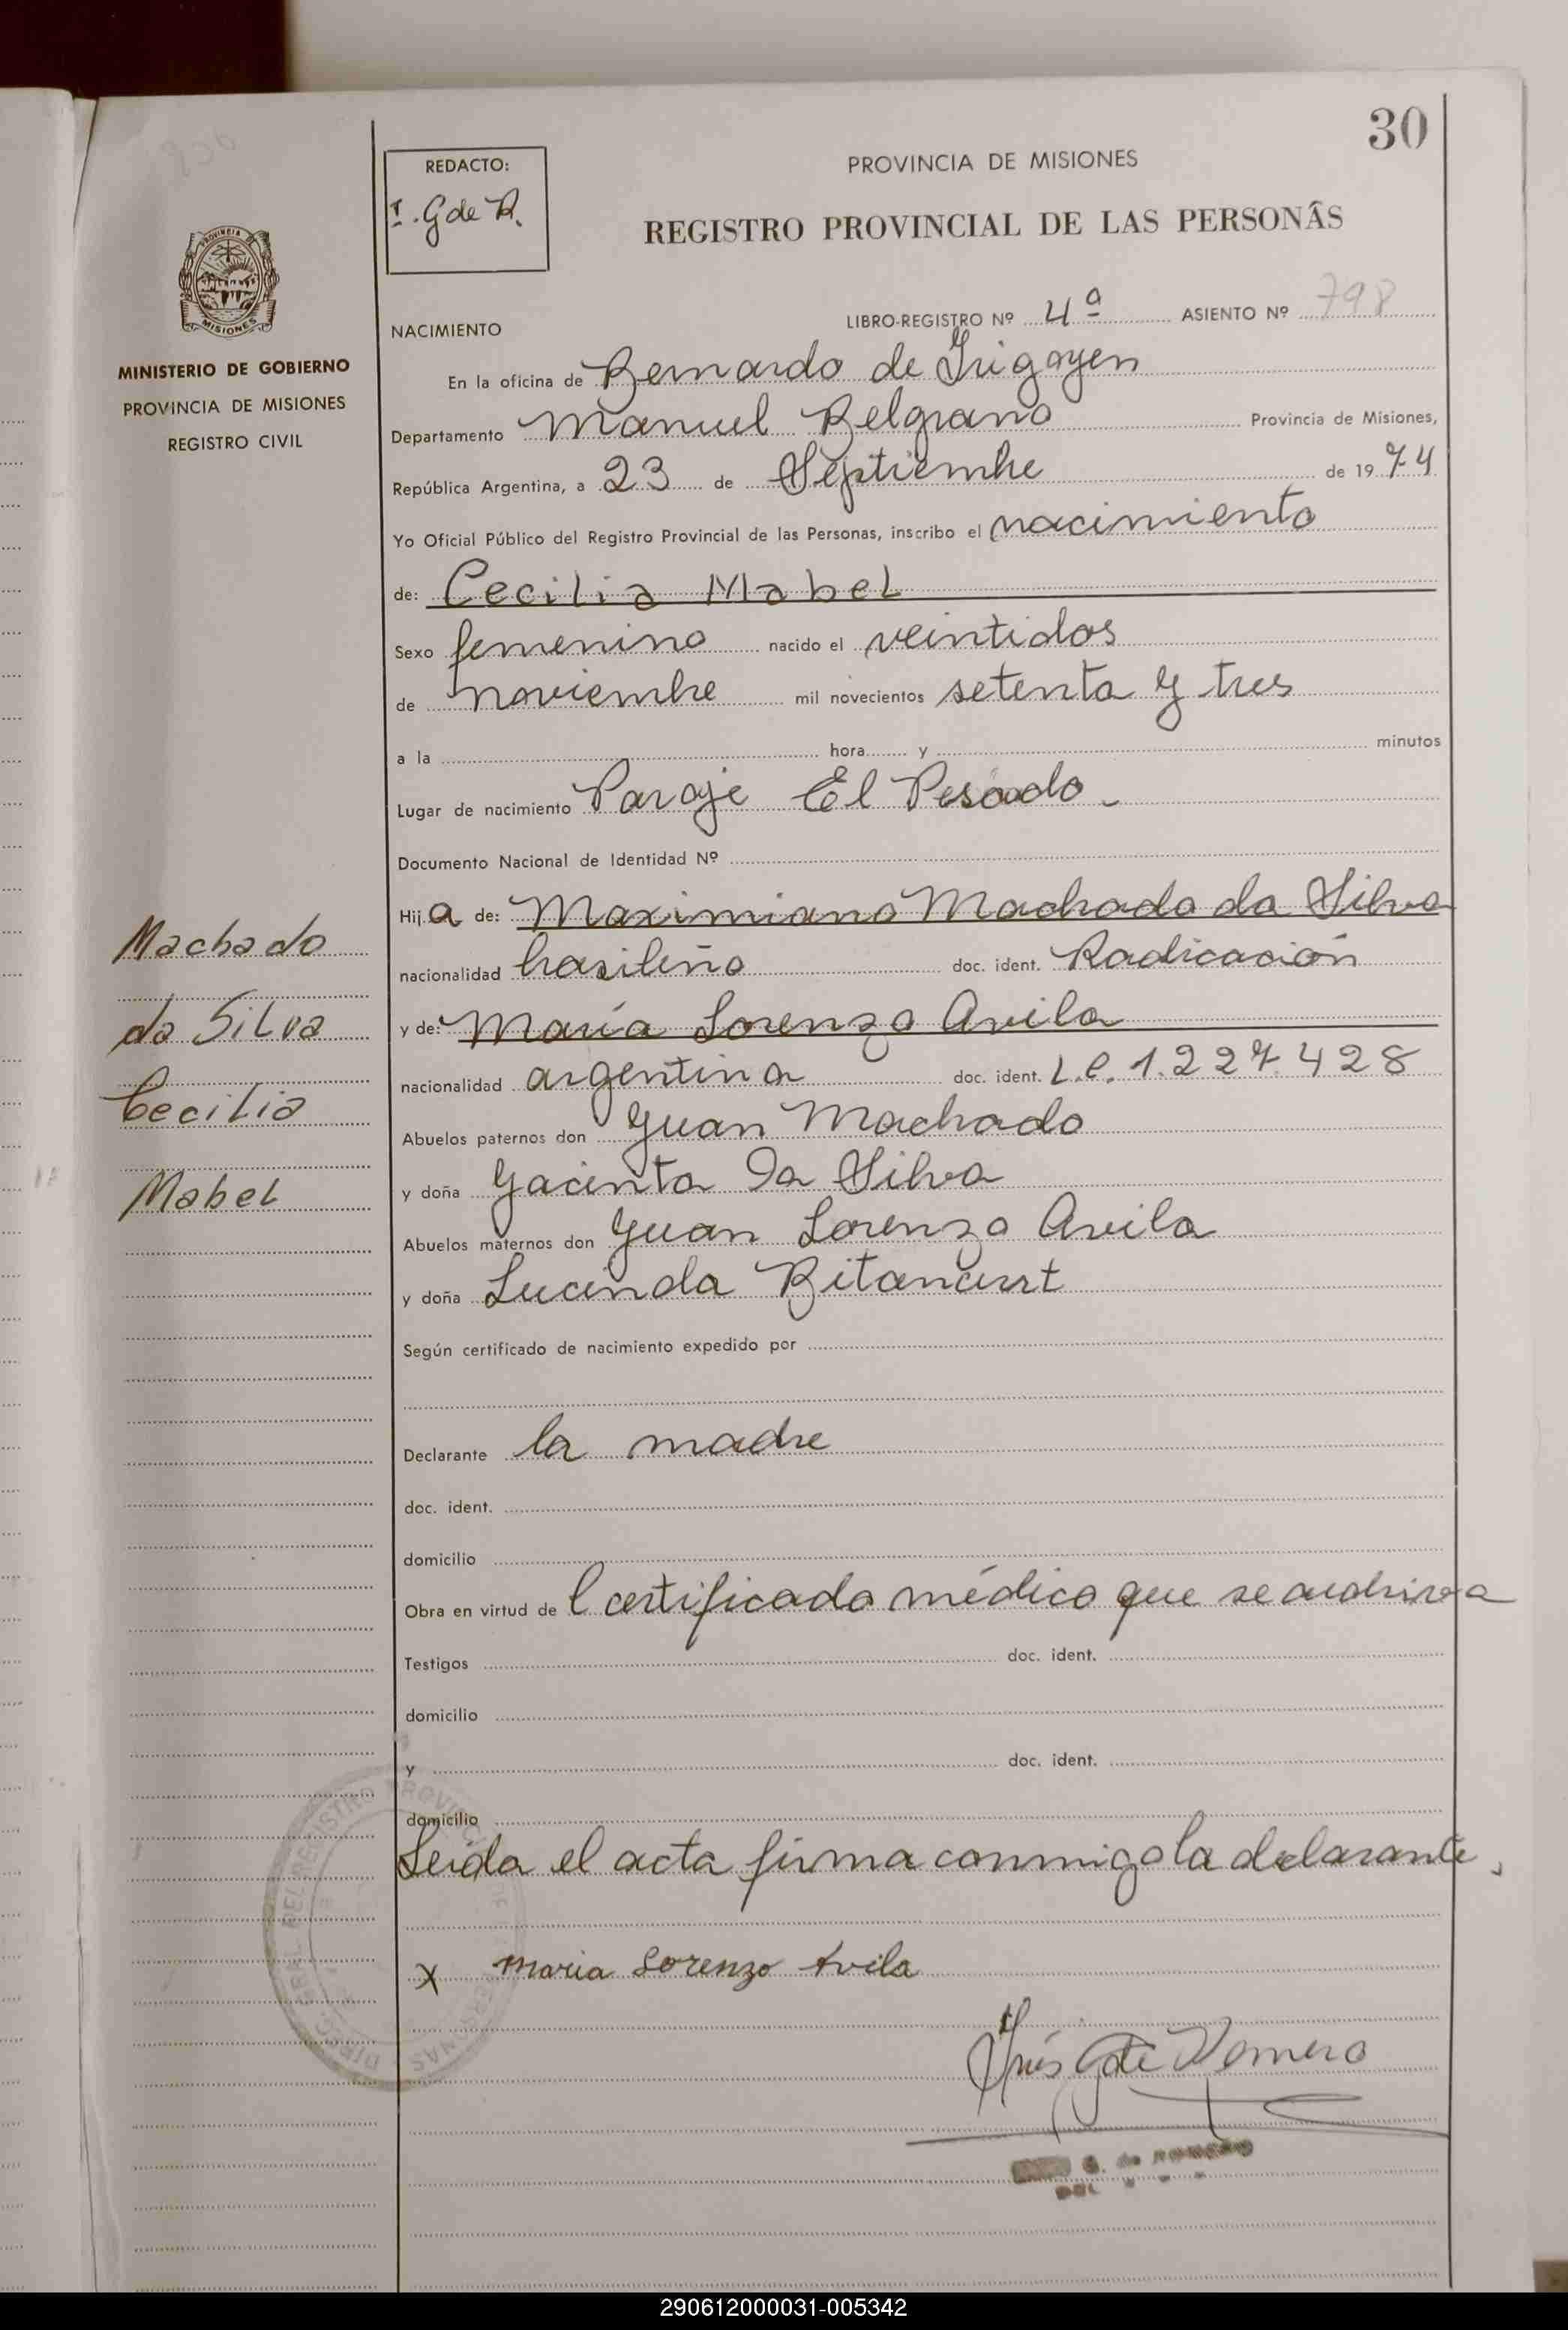 30
REDACTO:
I. G de R.
PROVINCIA DE MISIONES
REGISTRO PROVINCIAL DE LAS PERSONAS
PROVINCIA DE
MISIONES
MINISTERIO DE GOBIERNO
PROVINCIA DE MISIONES
REGISTRO CIVIL
NACIMIENTO
LIBRO-REGISTRO Nº 4ª ASIENTO Nº 798
En la oficina de Bernardo de Irigoyen
Departamento Manuel Belgrano Provincia de Misiones,
República Argentina, a 23 de Septiembre de 1974
Yo Oficial Público del Registro Provincial de las Personas, inscribo el nacimiento
de: Cecilia Mabel
Sexo femenino nacido el veintidos
de noviembre mil novecientos setenta y tres
a la hora y minutos
Lugar de nacimiento Paraje El Pesado
Documento Nacional de Identidad Nº
Hij.a de: Maximiano Machado da Silva
nacionalidad brasileño doc. ident. Radicación
y de: María Lorenza Avila
nacionalidad argentina doc. ident. L.C. 1.227.428
Abuelos paternos don Juan Machado
y doña Jacinta Da Silva
Abuelos maternos don Juan Lorenzo Avila
y doña Lucinda Bitancurt
Según certificado de nacimiento expedido por
Declarante la madre
doc. ident.
domicilio
Obra en virtud de l certificado médico que se archiva
Testigos doc. ident.
domicilio
y doc. ident.
domicilio
Leida el acta firma conmigo la delarante,
x maria Lorenzo Avila
Inés G de Romero
G. de ROMERO
Machado
da Silva
Cecilia
Mabel
290612000031-005342